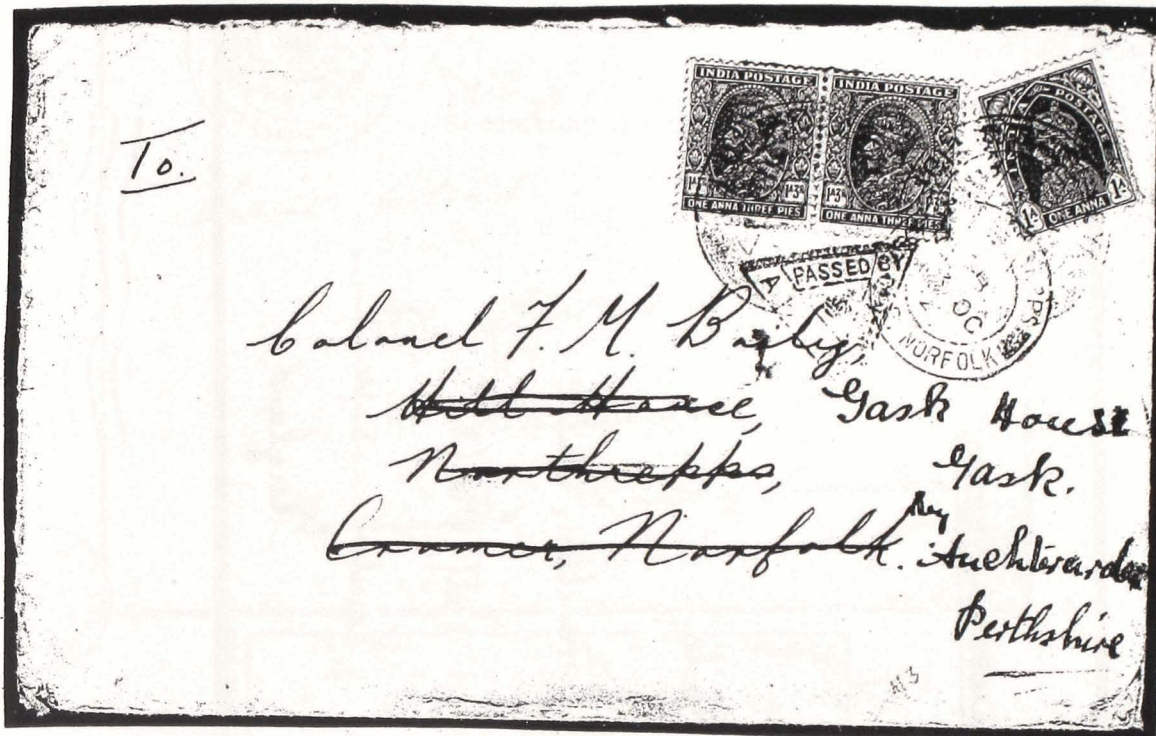 To.
INDIA POSTAGE
1A3P 1A3P
ONE ANNA THREE PIES
INDIA POSTAGE
1A3P
ONE ANNA THREE PIES
INDIA POSTAGE
1A 1A
ONE ANNA
A PASSED BY
OC
NORFOLK
Colonel F. M. Bailey,
Hill House,
Northrepps,
Cromer, Norfolk.
Gask House
Gask.
By Auchterarder
Perthshire